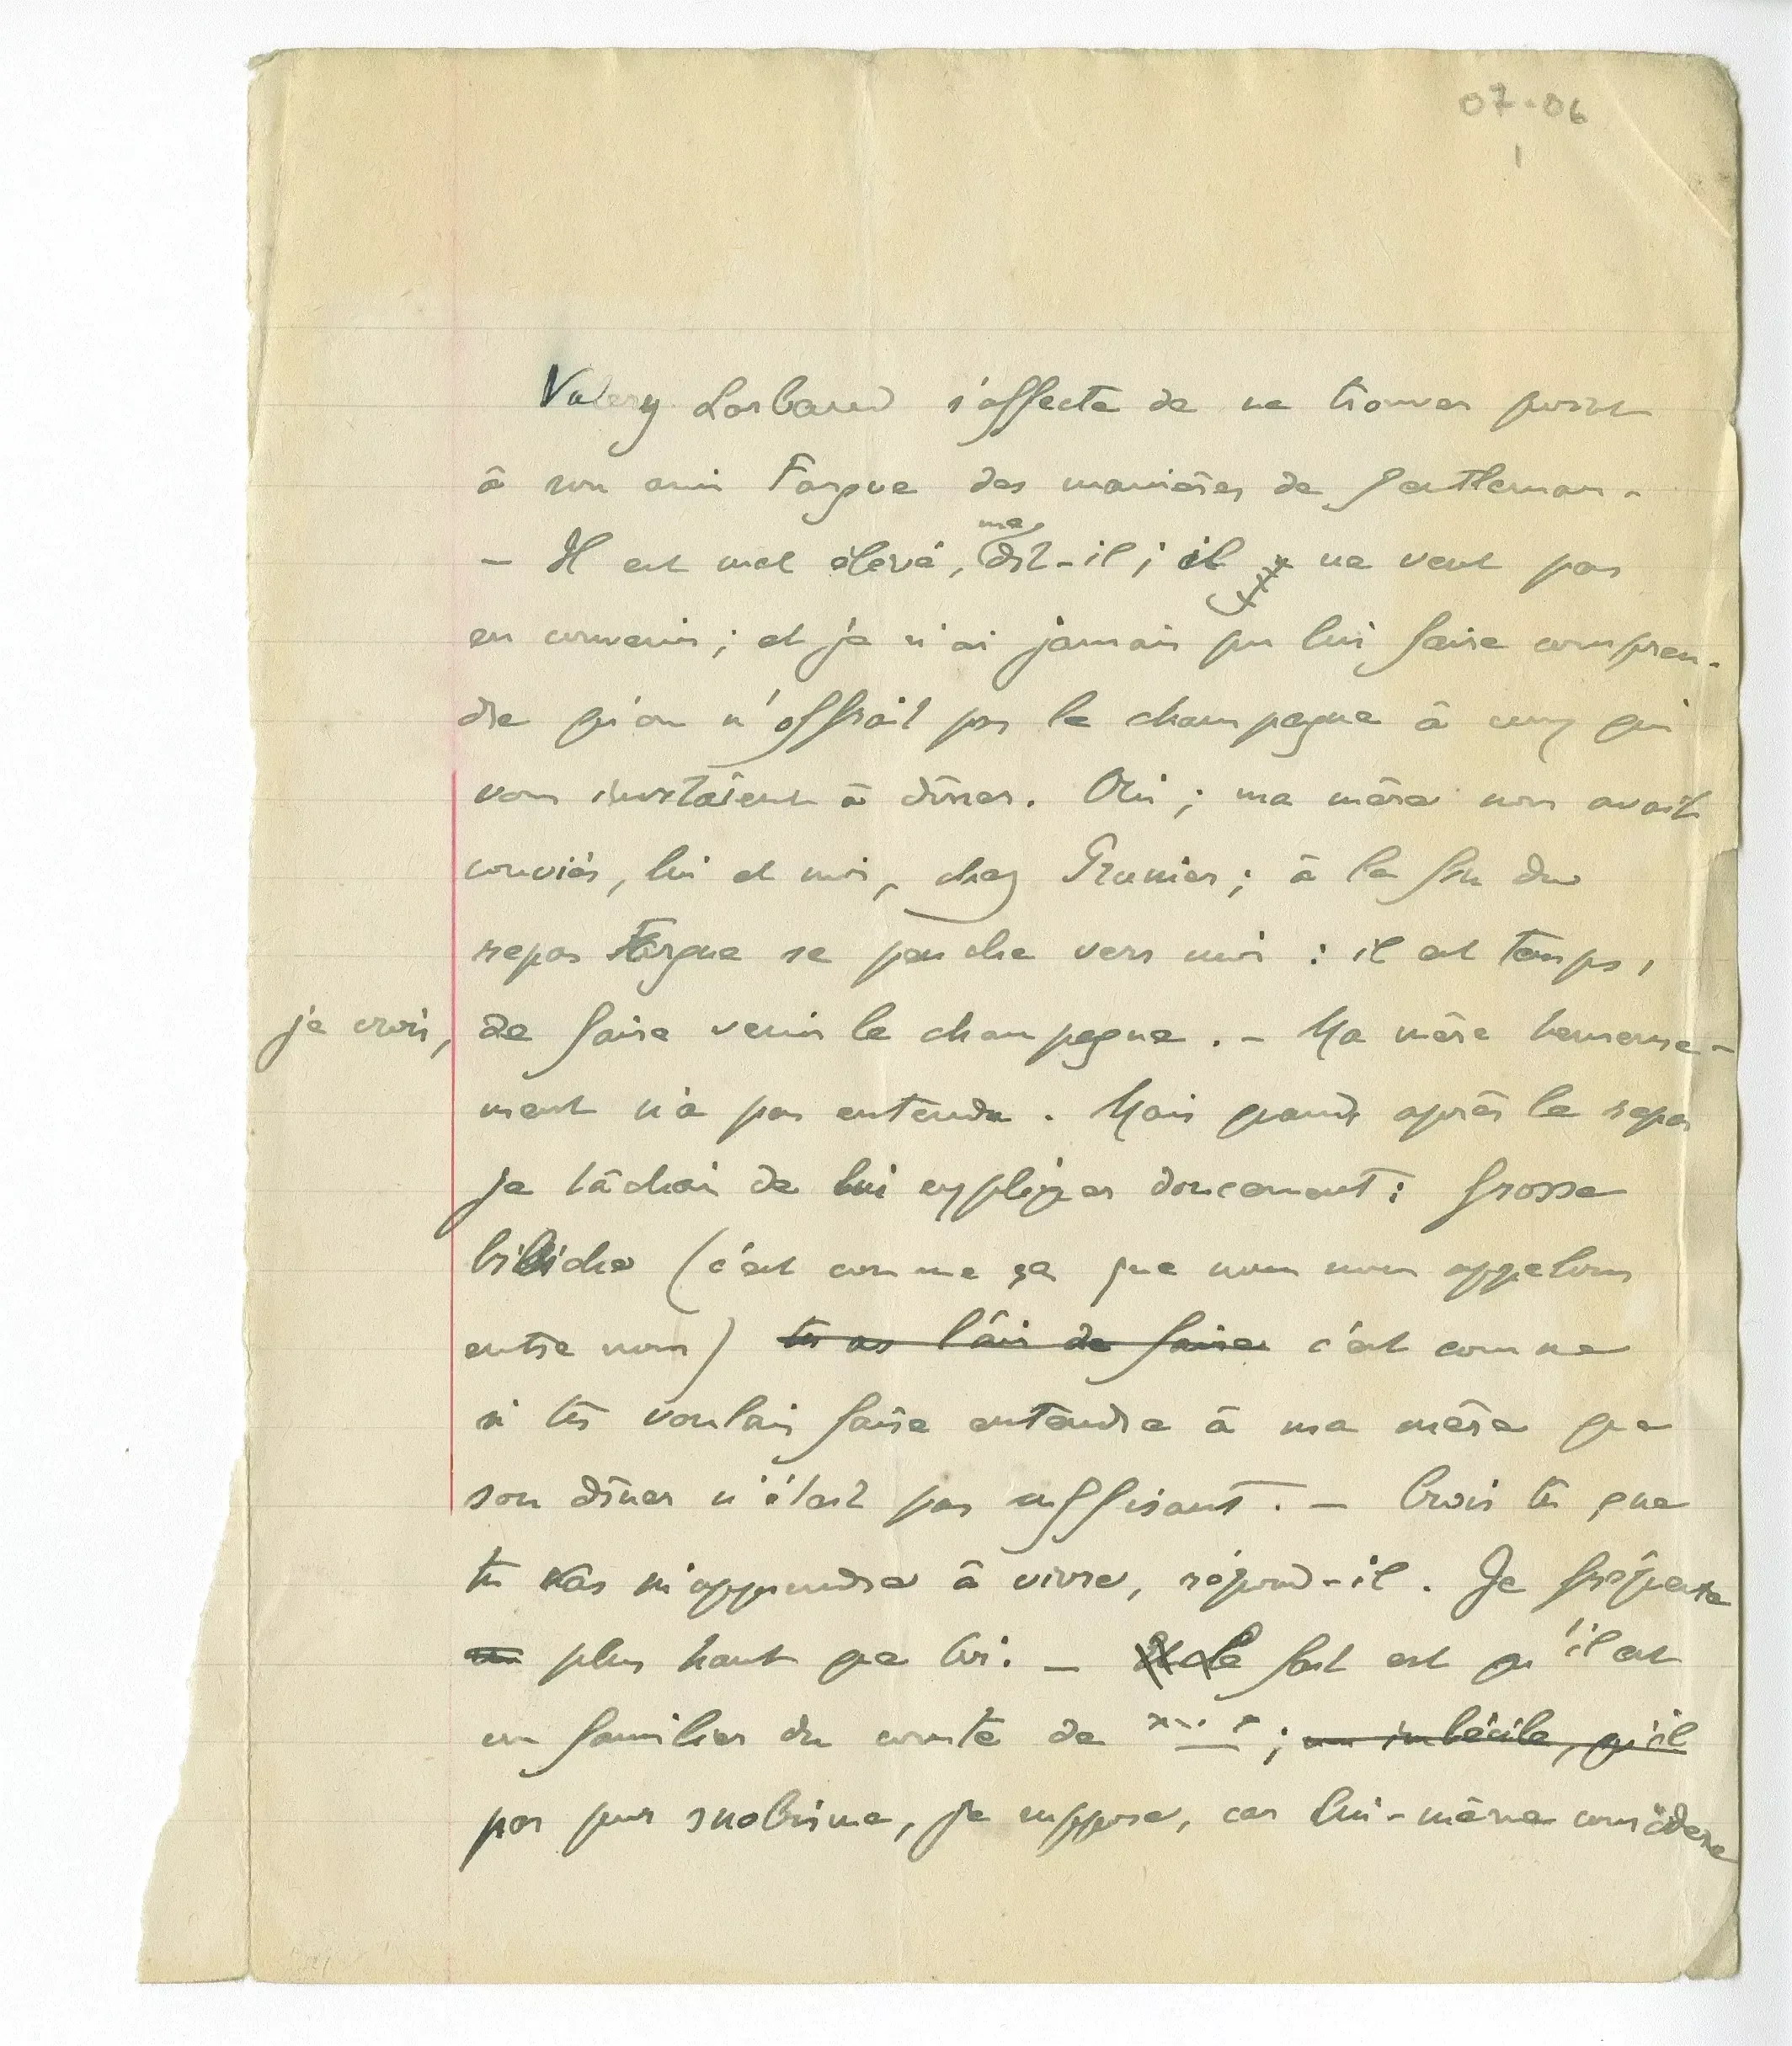 07-06
1
Valery Larbaud s'affecte de ne trouver point
à son ami Fargue des manières de gentleman.
me
— Il est mal élevé, dit-il ; il ne veut pas
en convenir ; et je n'ai jamais pu lui faire compren-
dre qu'on n'offrait pas le champagne à ceux qui
vous invitaient à dîner. Oui ; ma mère nous avait
conviés, lui et moi, chez Prunier ; à la fin du
repas Fargue se penche vers moi : il est temps,
je crois, de faire venir le champagne. — Ma mère heureuse-
ment n'a pas entendu. Mais quand après le repas
je tâchai de lui expliquer doucement : Grosse
bibiche (c'est comme ça que nous nous appelons
entre nous) tu as l'air de faire c'est comme
si tu voulais faire entendre à ma mère que
son dîner n'était pas suffisant. — Crois tu que
tu vas m'apprendre à vivre, répond-il. Je fréquente
plus haut que toi. — Le fait est qu'il est
un familier du comte de x... x ; un imbécile, qu'il
par pur snobisme, je suppose, car lui-même considère